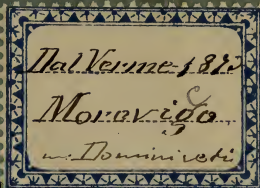 Dal Verme 187
Moravigo
m: Dominiceti